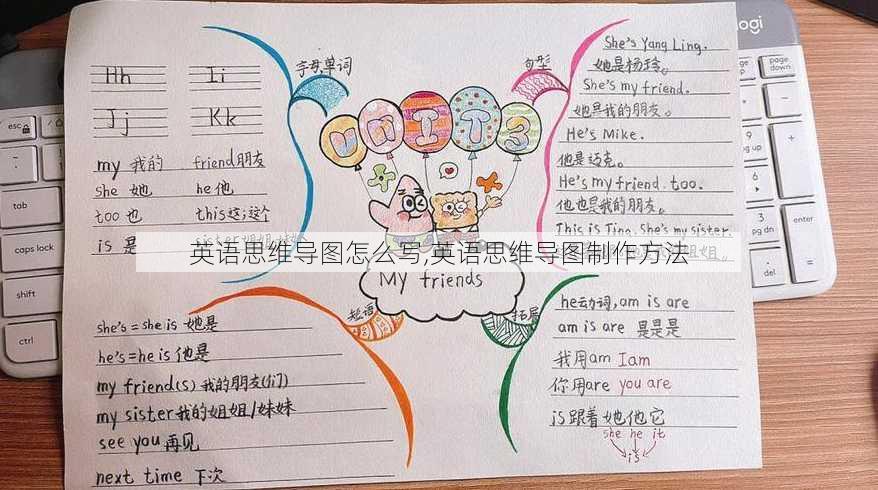 字母,单词
Hh Ii
Jj Kk
my 我的 friend朋友
she 她 he 他
too 也 this这;这个
is 是
句型
She's Yang Ling.
她是杨玲。
She's my friend.
她是我的朋友。
He's Mike.
他是迈克。
He's my friend. too.
他也是我的朋友。
This is Tina. She's my sister.
UNIT3
英语思维导图怎么写,英语思维导图制作方法
My friends
短语
she's = she is 她是
he's = he is 他是
my friend(s) 我的朋友(们)
my sister我的姐姐/妹妹
see you 再见
next time 下次
拓展
be动词,am is are
am is are 是是是
我用am I am
你用are you are
is跟着她他它
she he it
is
esc
tab
caps lock
shift
ctrl
logi
page down
enter